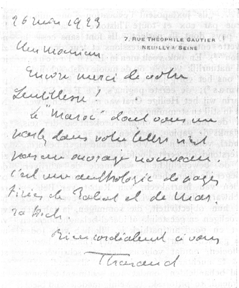 26 juin 1923
7, RUE THÉOPHILE GAUTIER
NEUILLY S/ SEINE
Encore merci de votre
gentillesse !
Le "Maroc" dont vous me
parlez dans votre lettre n'est
pas un ouvrage nouveau.
C'est une anthologie de pages
tirées de Rabat et de Mar-
rakech.
Bien cordialement à vous
Tharaud